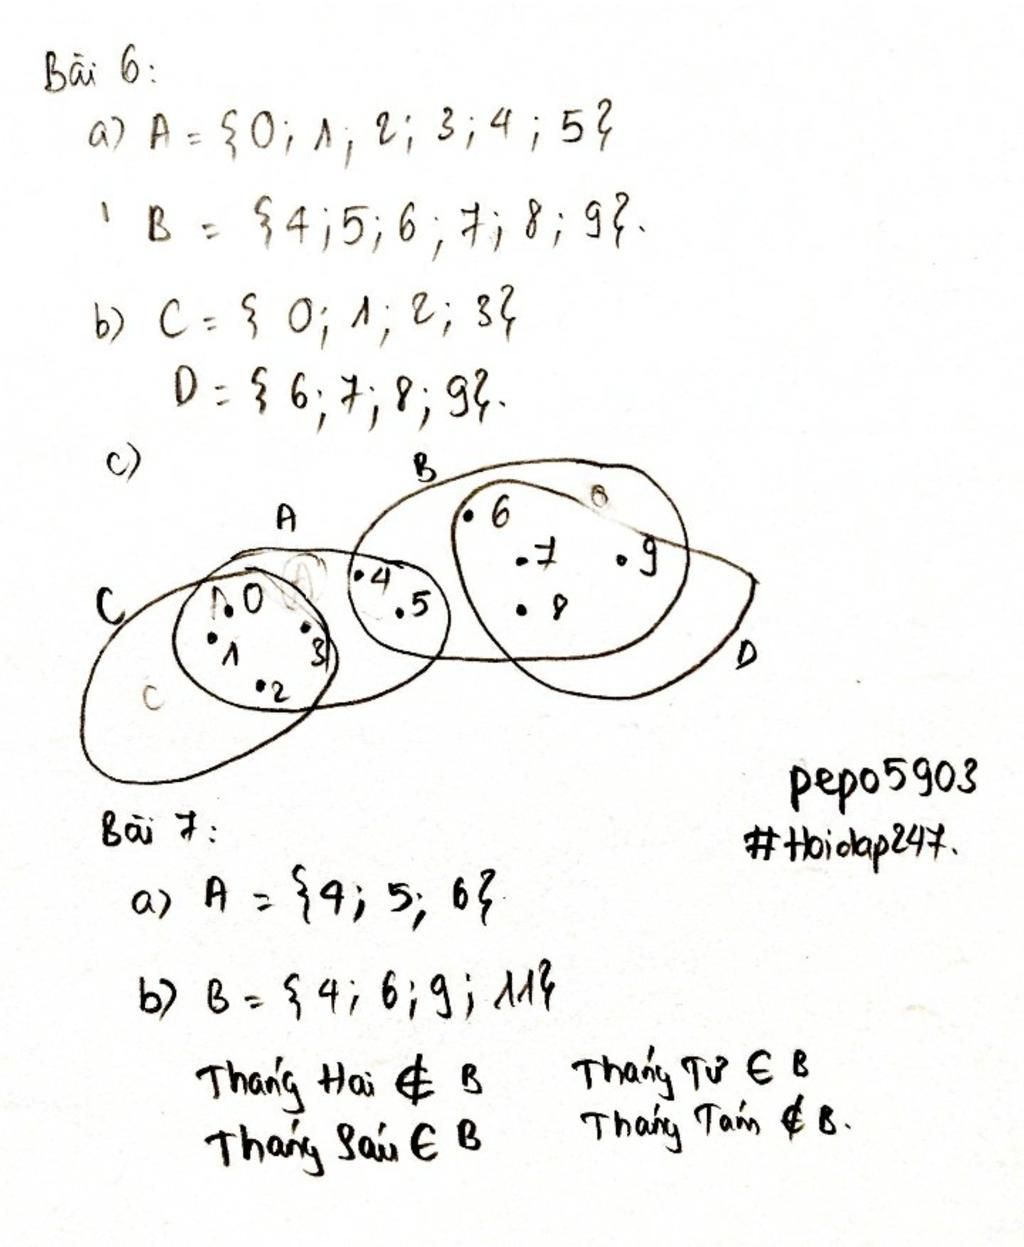 Bài 6:
a) A = {0; 1; 2; 3; 4; 5}
B = {4; 5; 6; 7; 8; 9}.
b) C = { 0; 1; 2; 3}
D = { 6; 7; 8; 9}.
c)
B
A
6
7
9
8
4
5
C
0
1
3
2
C
D
pepo5903
#Hoidap247.
Bài 7:
a) A = {4; 5; 6}
b) B = {4; 6; 9; 11}
Tháng Hai ∉ B Tháng Tư ∈ B
Tháng Sáu ∈ B Tháng Tám ∉ B.